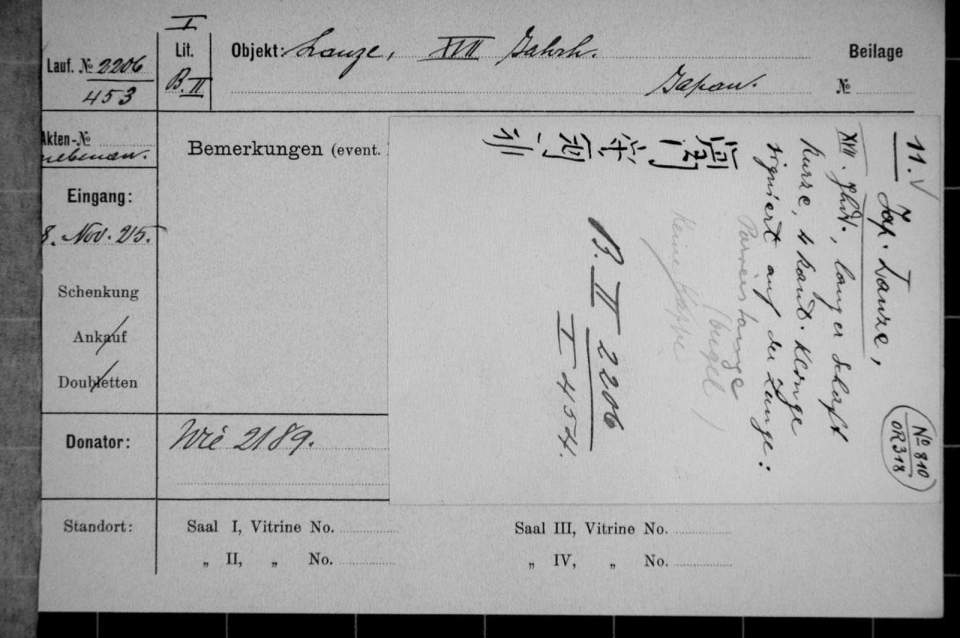 I
Lauf. № 2206
453
Lit.
B. II
Objekt: Lanze, XVII Jahrh.
Japan.
Beilage
№
Akten-№
nebenan.
Eingang:
8. Nov. 25.
Schenkung
Ankauf
Doubletten
Bemerkungen (event.
Donator:
Wie 2189.
Standort:
Saal I, Vitrine No.
„ II, „ No.
Saal III, Vitrine No.
„ IV, „ No.
11. Jap. Lanze,
XVII. Jhdt., langer Schaft
kurze, 4 kant. Klinge
signiert auf der Zunge:
Parierstange
(bügel)
Keine Kappe
B. II 2206
I 454.
№ 810
OR 318